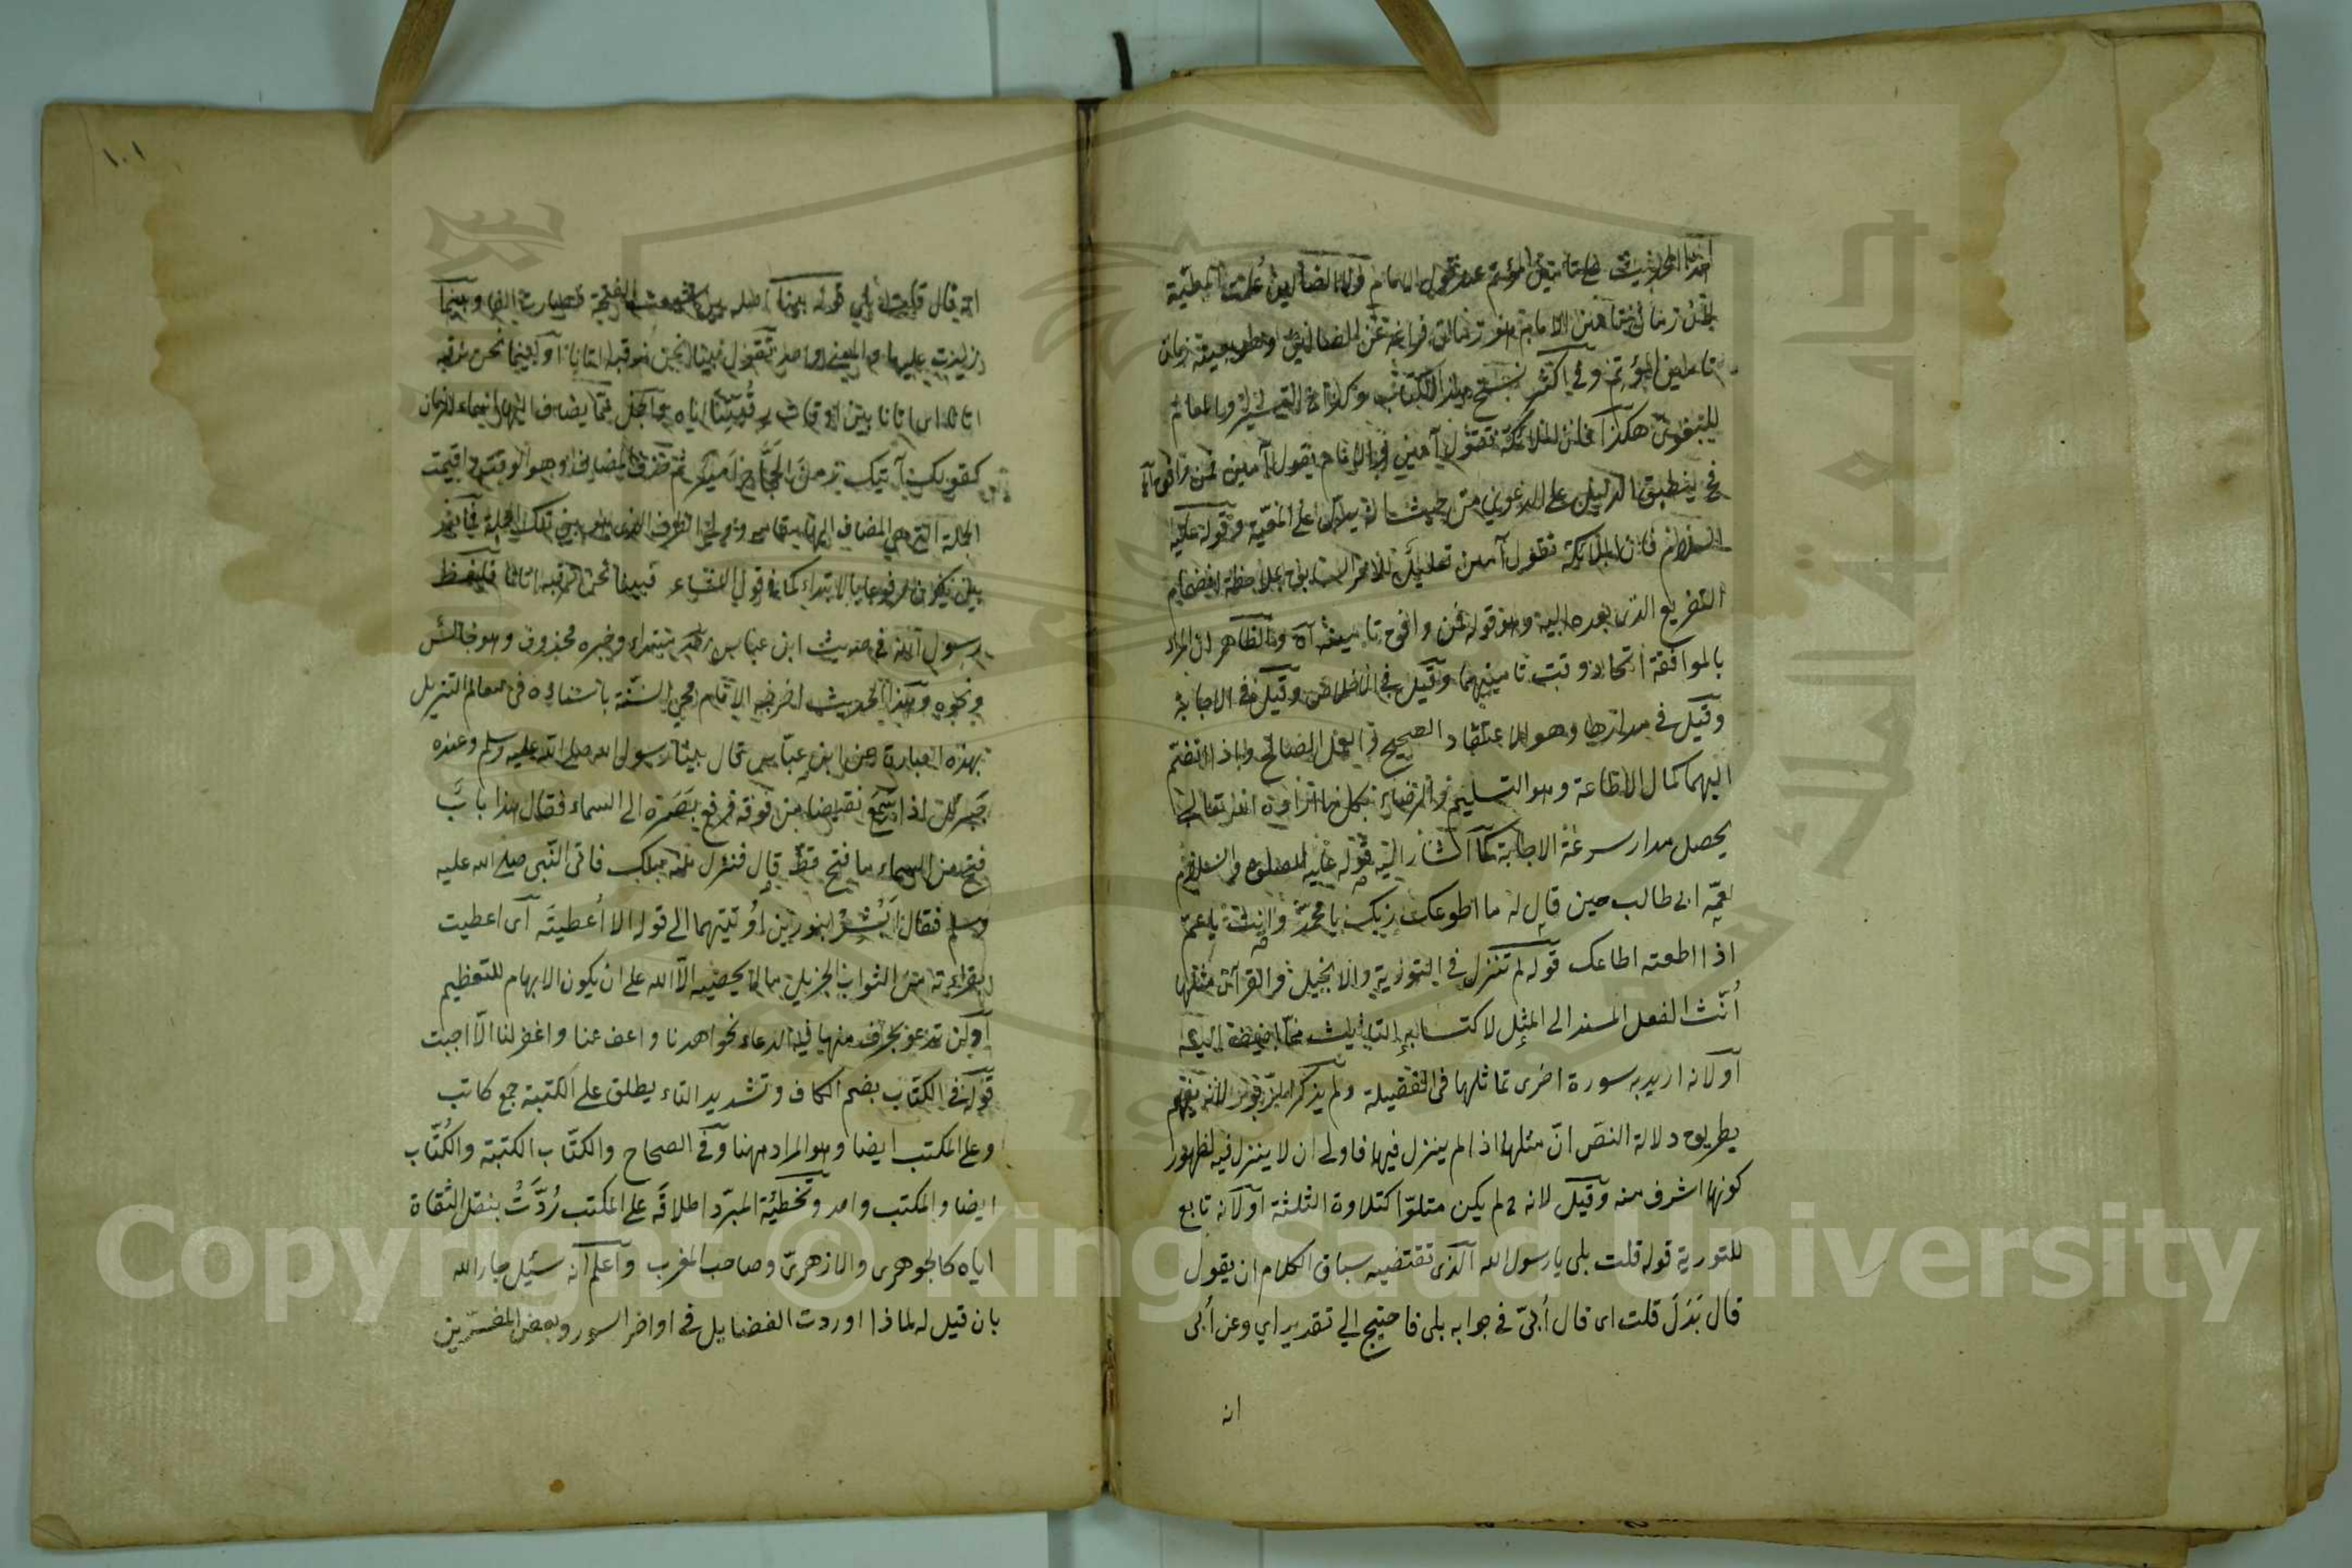 هذا الحديث على تأمين المؤتم عند قول الامام ولا الضالين علمت المعية
لان زمان تأمين الامام هو زمان فراغه عن الضالين
تأمين المؤتم وفي اكثر نسخ هذا الكتاب وكذا في التيسير والمعالم
للبغوي هكذا فان الملائكة تقول آمين والامام يقول آمين فمن وافق آه
فح ينطبق الدليل على الدعوى من حيث انه يدل على المعية وقوله عليه
السلام فان الملائكة تقول آمين تعليل للامر السابق بملاحظة انضمام
التفريع الذي بعده اليه وهو قوله فمن وافق تأمينه آه والظاهر ان المراد
بالموافقة اتحاد وقت تأمينهما وقيل في الاخلاص وقيل في الاجابة
وقيل في مدارها وهو الاعتقاد الصحيح والعمل الصالح واذا انضم
اليهما كمال الاطاعة وهو التسليم والرضاء بكل ما اراده الله تعالى
يحصل مدار سرعة الاجابة كما اشار اليه قوله عليه الصلوة والسلام
لعمه ابى طالب حين قال له ما اطوعك ربك يا محمد وانت يا عم
اذا اطعته اطاعك قوله لم تنزل في التورية والانجيل والقرآن مثلها
أنّث الفعل المسند الى المثل لاكتسابه التأنيث مما اضيف اليه
او لانه اريد به سورة اخرى تماثلها فى الفضيلة ولم يذكر الزبور لانه يفهم
بطريق دلالة النص انّ مثلها اذا لم ينزل فيها فاولى ان لا ينزل فيه لظهور
كونها اشرف منه وقيل لانه لم يكن متلوّا كتلاوة الثلثة او لانه تابع
للتورية قوله قلت بلى يا رسول الله الذي تقتضيه سباق الكلام ان يقول
قال بَدَلَ قلت اى قال أبىّ في جوابه بلى فاحتيج الي تقدير اي وعن أبى
انه
١٠١
انه قال قلت بلي قوله بينا اصله بين اشبعت الفتحة فصارت الفا وبينما
زيدت عليها ما والمعنى واحد تقول بينا نحن نرقبه اتانا او بينما نحن نرقبه
اتانا اى اتانا بين اوقات رقبتنا اياه والجمل مما يضاف اليها اسماء الزمان
كقولك آتيك زمن الحجاج امير ثم حذف المضاف وهو اوقات واقيمت
الجملة التي هي المضاف اليها مقامه وولي الظرف الذي هو بين تلك الجملة فما بعد
بين يكون مرفوعا بالابتداء كما في قول الشاعر فبينا نحن نرقبه اتانا فلفظ
رسول الله في حديث ابن عباس رضي مبتداء وخبره محذوف وهو جالس
ونحوه وهذا الحديث اخرجه الامام محي السنّة باسناده فى معالم التنزيل
بهذه العبارة عن ابن عباس قال بينا رسول الله صلى الله عليه وسلم وعنده
جبرئل اذا سمع نقيضا من فوقه فرفع بَصَرَه الى السماء فقال هذا بابٌ
فتح من السماء ما فتح قط قال فنزل منه ملك فاتى النّبى صلى الله عليه
وسلم فقال ابشر بنورين أوتيتهما الى قوله الا أعطيته اى اعطيت
بقراءته من الثواب الجزيل ما لا يحصيه الّا الله على ان يكون الابهام للتعظيم
او لن تدعو بحرف منها فيه الدعاء نحو اهدنا واعف عنا واغفر لنا الّا اجبت
قوله في الكتّاب بضم الكاف وتشديد التاء يطلق على الكتبة جمع كاتب
وعلى المكتب ايضا وهو المراد ههنا وفي الصحاح والكتّاب الكتبة والكُتّاب
ايضا والمكتب واحد وتخطئة المبرّد اطلاقَه على المكتب رُدّتْ بنقل الثقاة
اياه كالجوهرى والازهرىّ وصاحب المغرب واعلم انه سئِل جار الله
بان قيل له لماذا اوردت الفضايل في اواخر السور وبعض المفسّرين